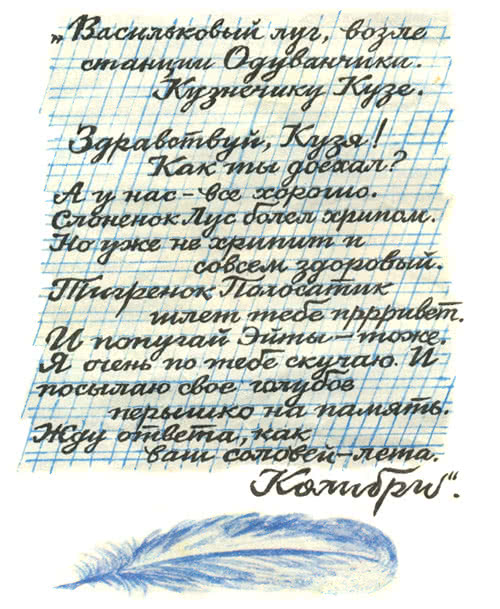 „Васильковый луг, возле
станции Одуванчики.
Кузнечику Кузе.
Здравствуй, Кузя!
Как ты доехал?
А у нас – все хорошо.
Слоненок Лус болел хрипом.
Но уже не хрипит и
совсем здоровый.
Тигренок Полосатик
шлет тебе пррривет.
И попугай Эйты – тоже.
Я очень по тебе скучаю. И
посылаю свое голубое
перышко на память.
Жду ответа, как
ваш соловей – лета.
Колибри“.